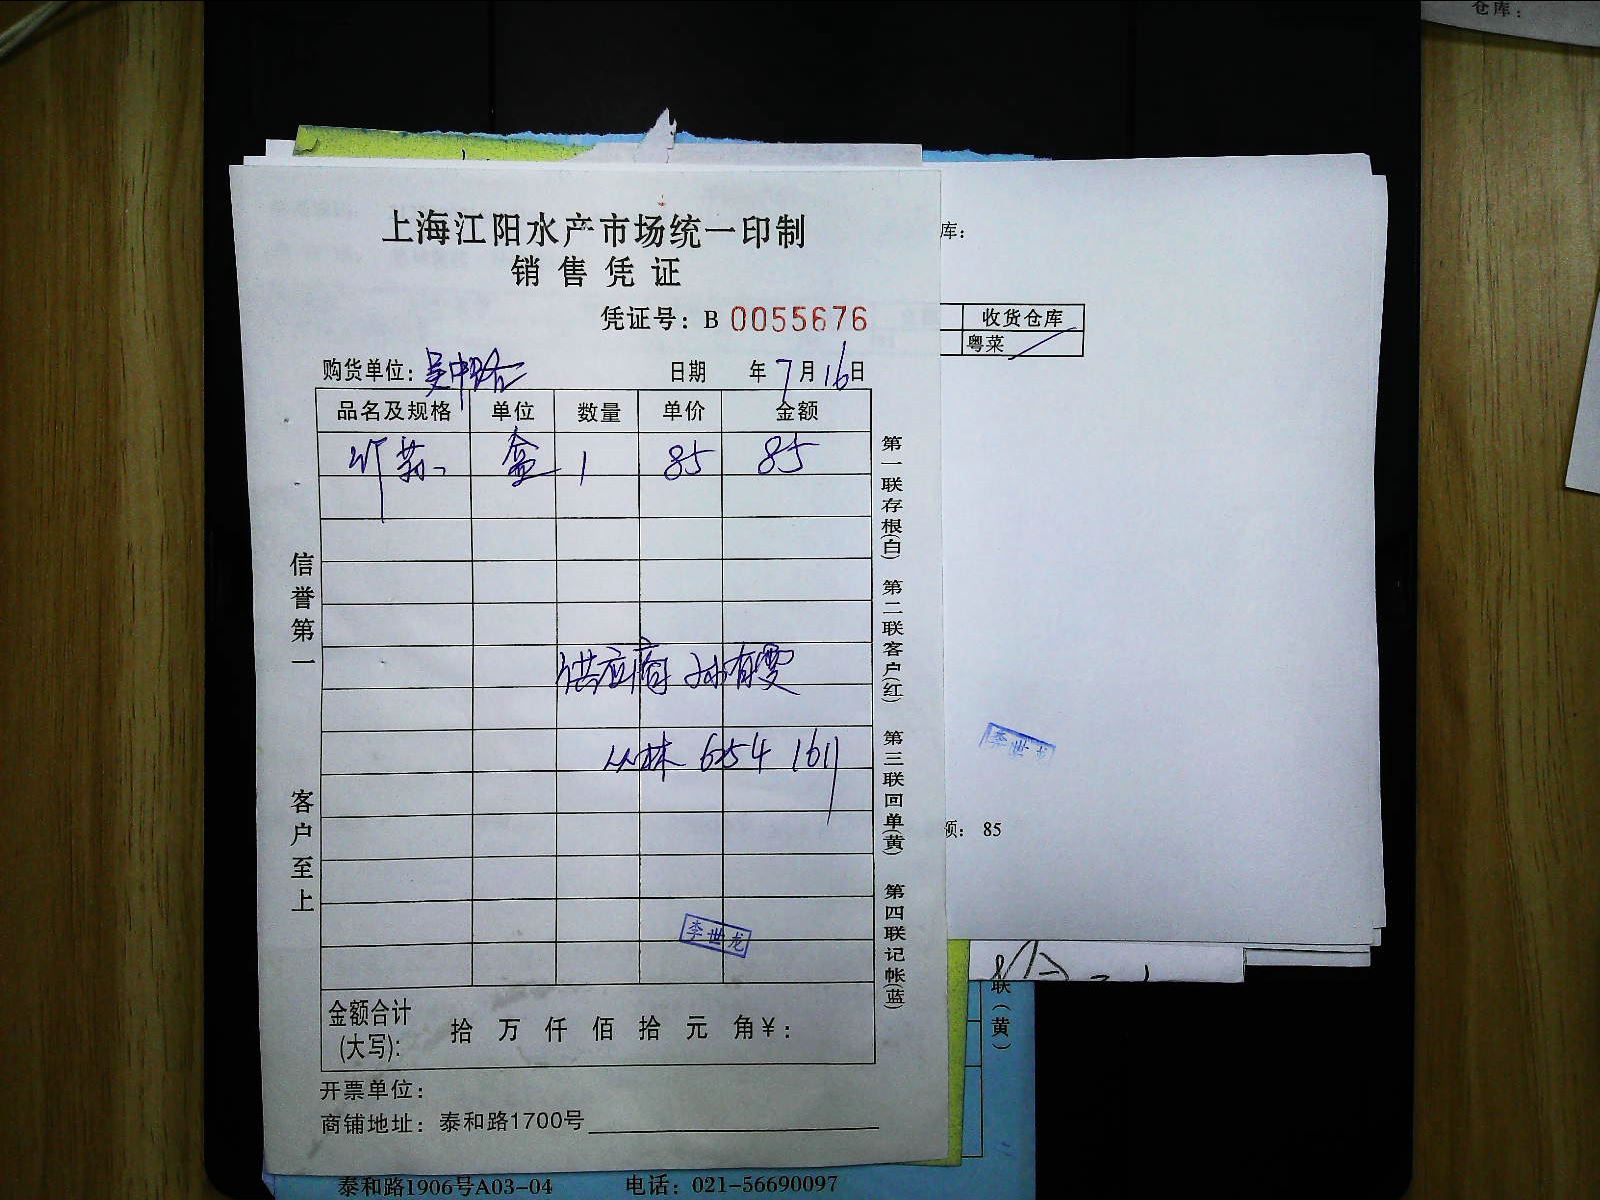 仓库：
上海江阳水产市场统一印制
销售凭证
凭证号：B 0055676
购货单位：吴中路
日期 年7月16日
品名及规格 单位 数量 单价 金额
盒 1 85 85
供应商 孙有雯
丛林 654 1611
李世龙
金额合计
(大写)：
拾 万 仟 佰 拾 元 角¥：
开票单位：
商铺地址：泰和路1700号
信誉第一
客户至上
第一联存根(白) 第二联客户(红) 第三联回单(黄) 第四联记帐(蓝)
库：
收货仓库
粤菜
李世龙
额： 85
联(黄)
泰和路1906号A03-04 电话：021-56690097